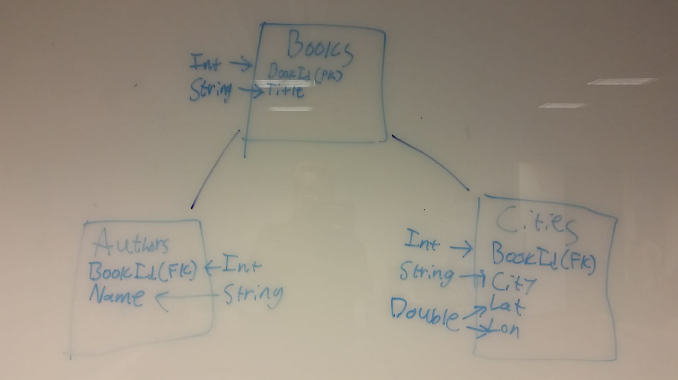 Books
Int → BookId(PK)
String → Title
Authors
BookId(FK) ← Int
Name ← String
Cities
Int → BookId(FK)
String → City
Double → Lat
→ Lon